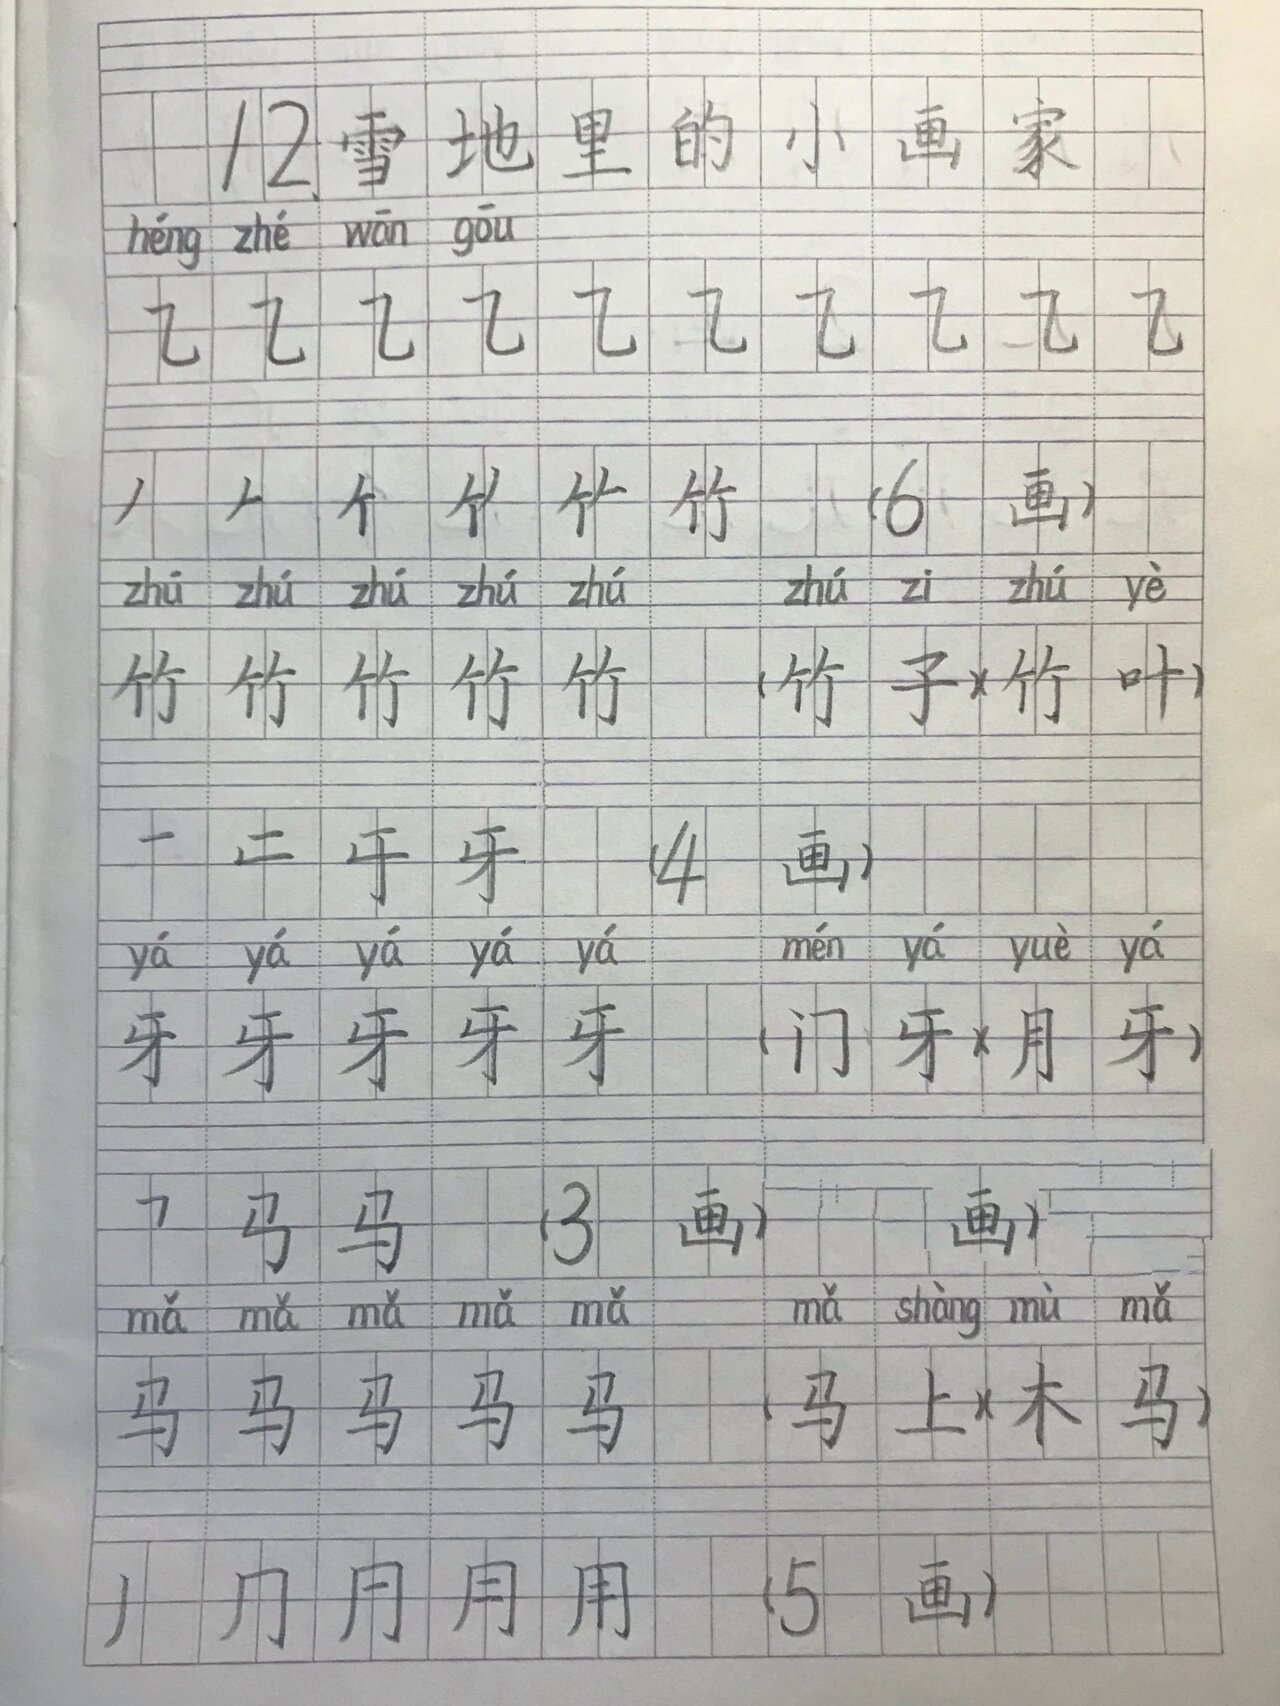 12、雪地里的小画家
héng zhé wān gōu
㇈ ㇈ ㇈ ㇈ ㇈ ㇈ ㇈ ㇈ ㇈ ㇈
竹 (6画)
zhú zhú zhú zhú zhú zhú zi zhú yè
竹 竹 竹 竹 竹 (竹子)(竹叶)
一 牙 (4画)
yá yá yá yá yá mén yá yuè yá
牙 牙 牙 牙 牙 (门牙)(月牙)
马 (3画) 画)
mǎ mǎ mǎ mǎ mǎ mǎ shàng mù mǎ
马 马 马 马 马 (马上)(木马)
丿 ⺆ 月 用 (5画)